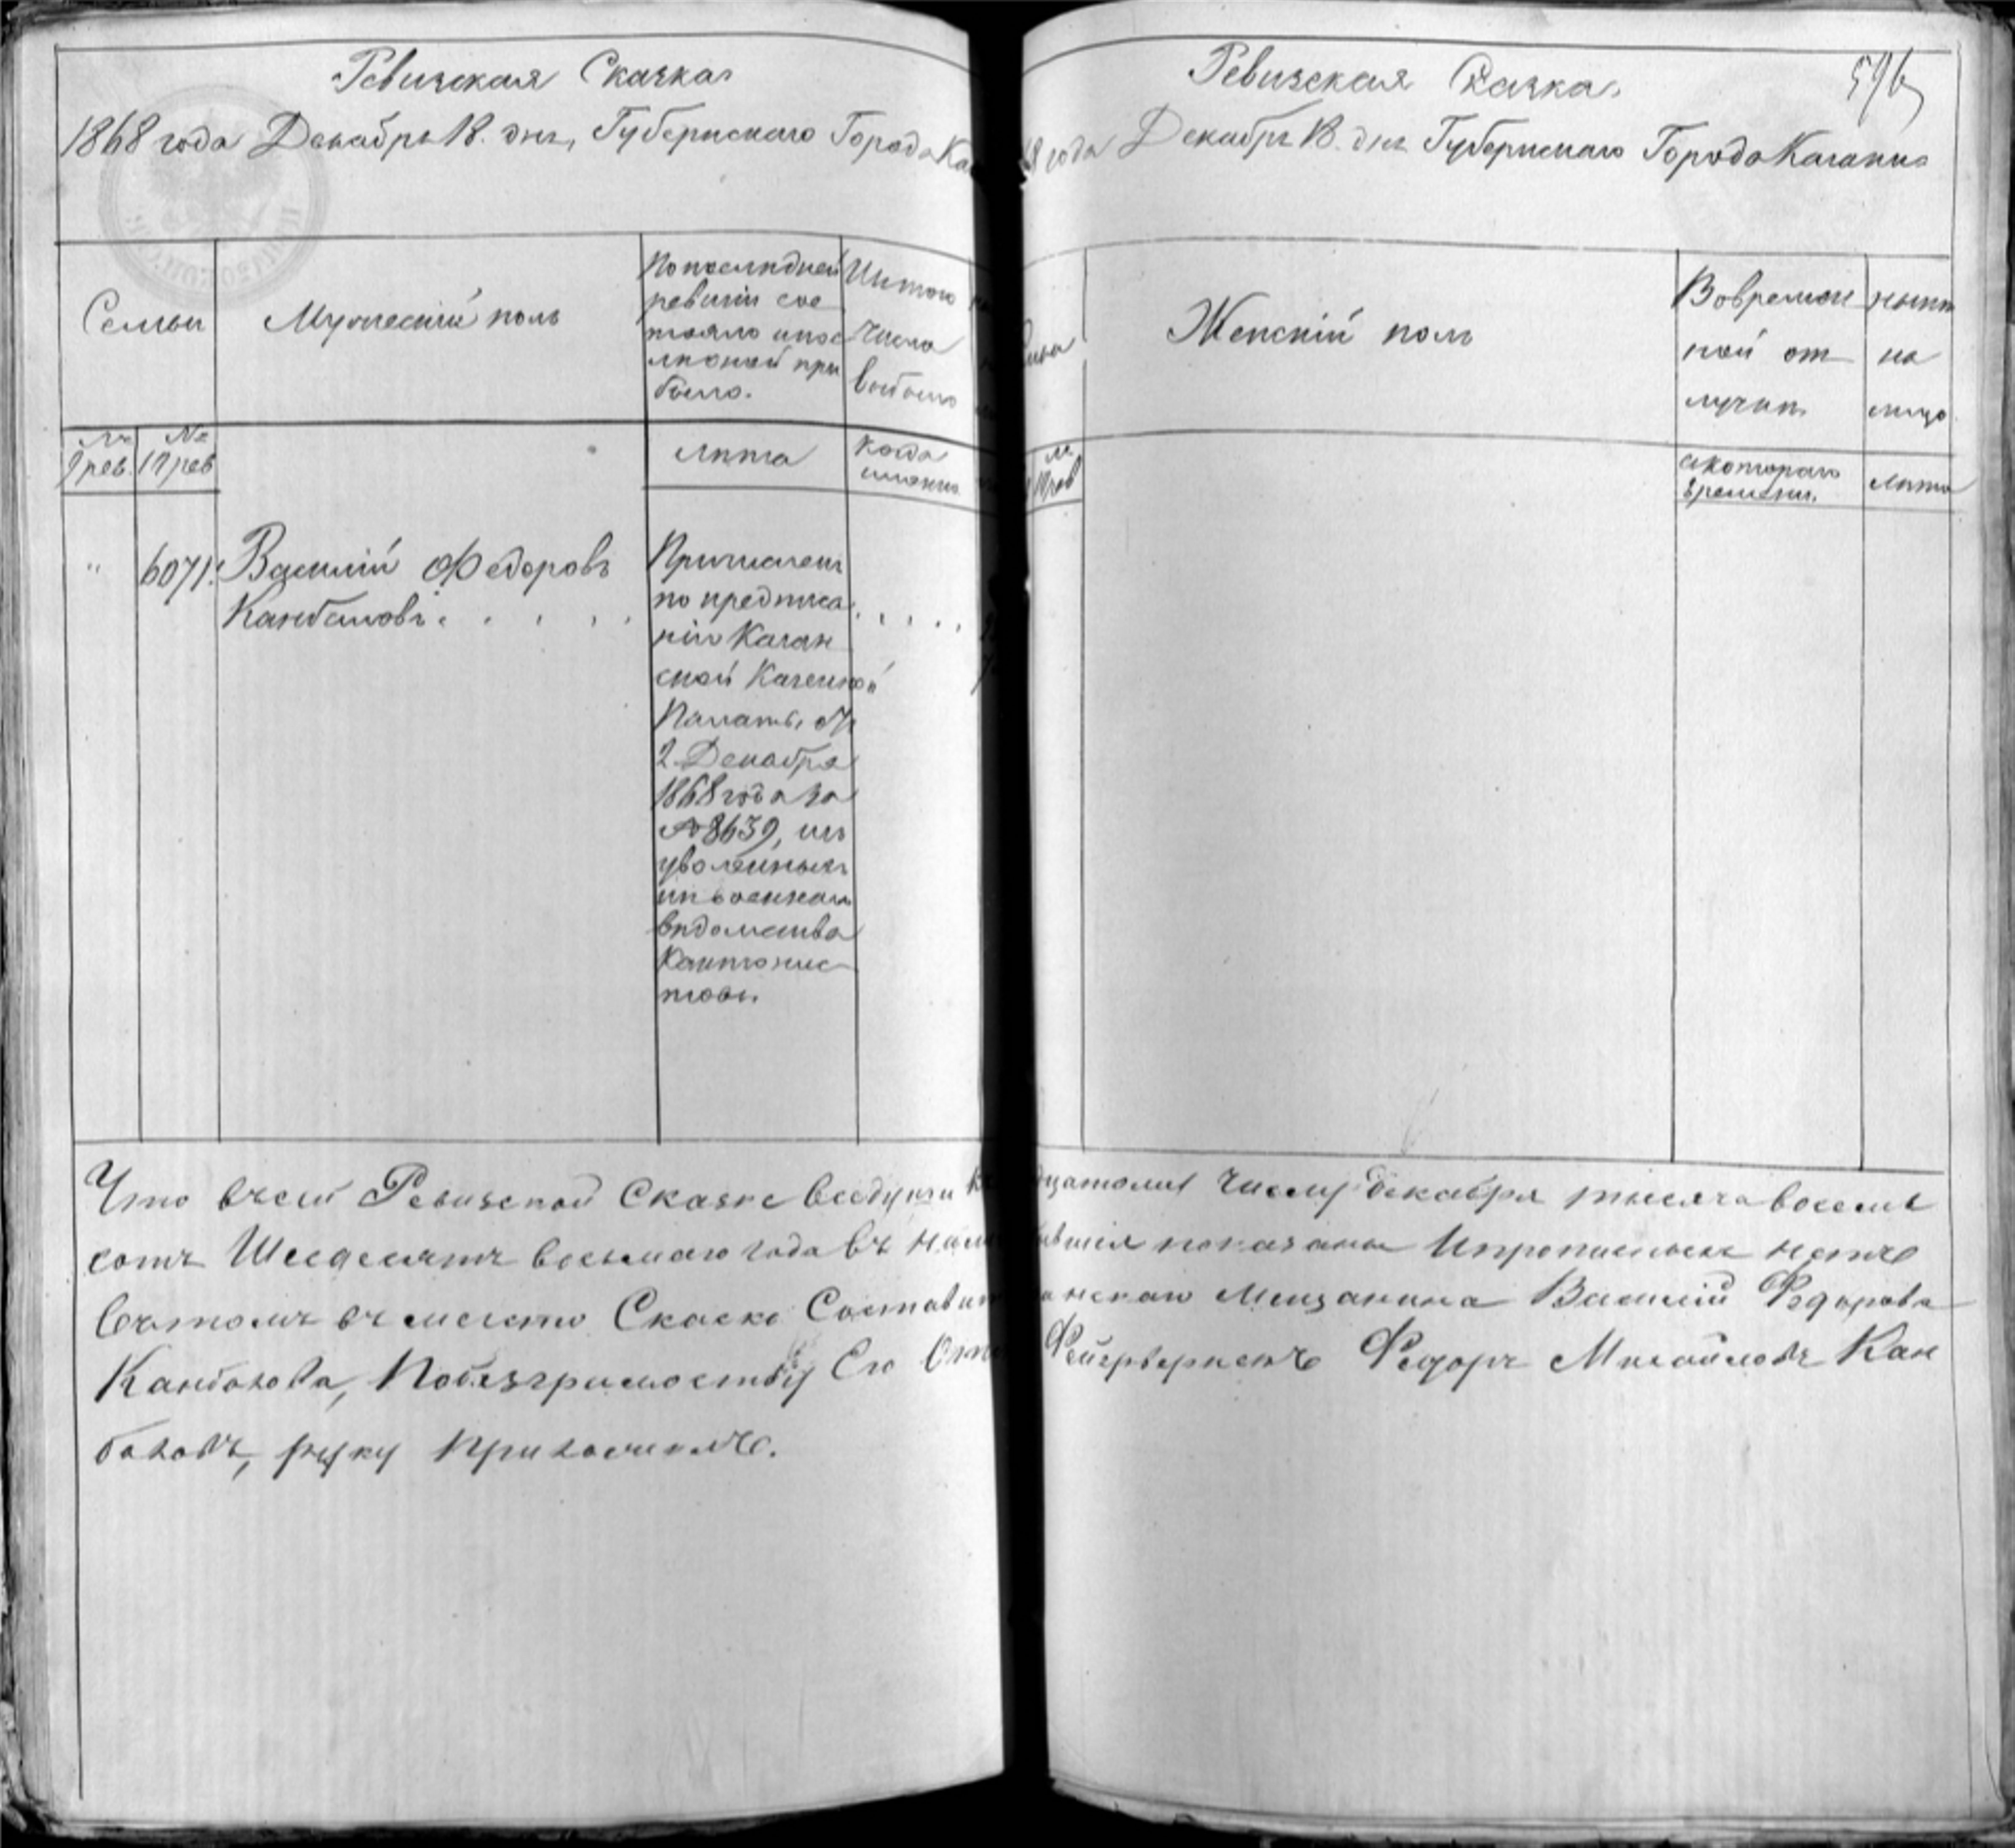 Ревизская Сказка
1868 года Декабря 18. дня, Губернскаго Города Каз
Семьи
Мужескій полъ
По последней
ревизіи сос
тояло и пос
лѣ оной при
было.
Изъ того
числа
выбыло
№
9 рев.
№
10 рев
лѣта
когда
именно
"
6071.
Василій Федоровъ
Канбаловъ
Причисленъ
по предписа
нію Казан
ской Казенной
Палаты от
2 Декабря
1868 года за
№ 8639, изъ
уволенныхъ
изъ военнаго
вѣдомства
Кантонис
товъ.
Ревизская Сказка
596
68 года Декабря 18. дня Губернскаго Города Казани
Женскій полъ
Во времен
ной от
лучки
нынѣ
на
лицо
№
10 рев
съ котораго
времени.
лѣта
Что въ сей Ревизской Сказке все души
дцатому Числу декабря тысяча восемь
сотъ Шесдесятъ восьмаго года въ
показаны И прописныхъ нетъ
въ томъ Сказке Составит
анскаго Мещанина Василій Федорова
Канбалова, По безграмотству Его Оте
Фейерверкеръ Федоръ Михайловъ Кан
баловъ, руку Приложилъ.